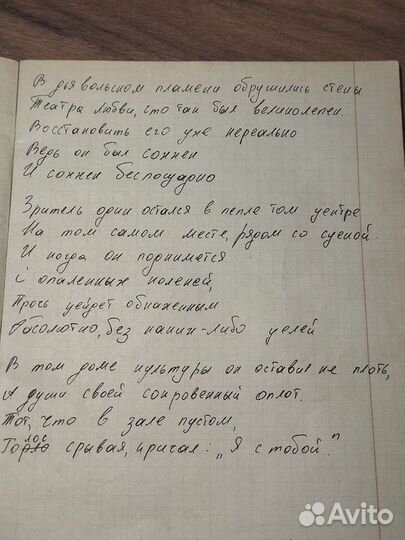 В дьявольском пламени обрушились стены
Театра любви, что так был великолепен.
Восстановить его уже нереально
Ведь он был сожжен
И сожжен беспощадно
Зритель один остался в пепла том центре
На том самом месте, рядом со сценой.
И когда он поднимется
с опаленных коленей,
Прочь уйдет обнаженным
Абсолютно, без каких-либо целей
В том доме культуры он оставил не плоть,
А души своей сокровенный оплот.
Тот, что в зале пустом,
Голос срывая, кричал: „Я с тобой."
Avito